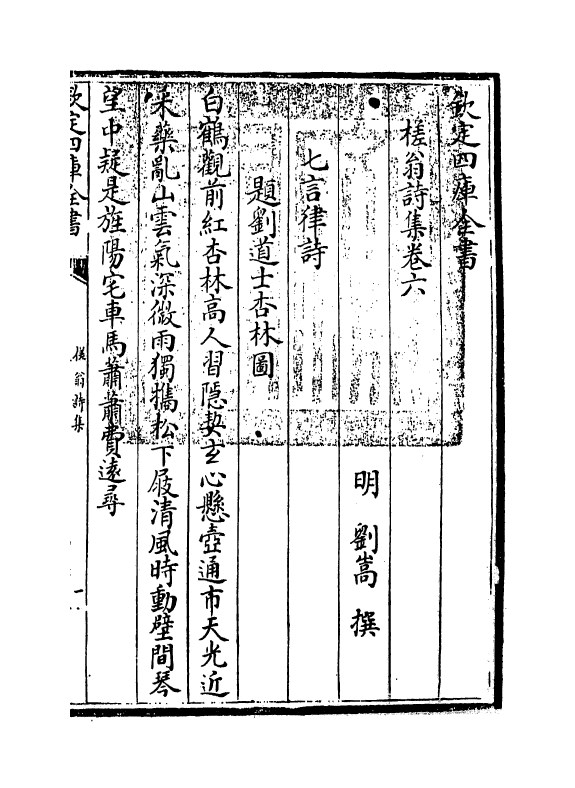 欽定四庫全書
槎翁詩集卷六
明 劉嵩 撰
七言律詩
題劉道士杏林圖
白鶴觀前紅杏林高人習隠契玄心懸壺通市天光近
采藥亂山雲氣深微雨獨攜松下屐清風時動壁間琴
望中疑是旌陽宅車馬蕭蕭費逺尋
欽定四庫全書
槎翁詩集
一